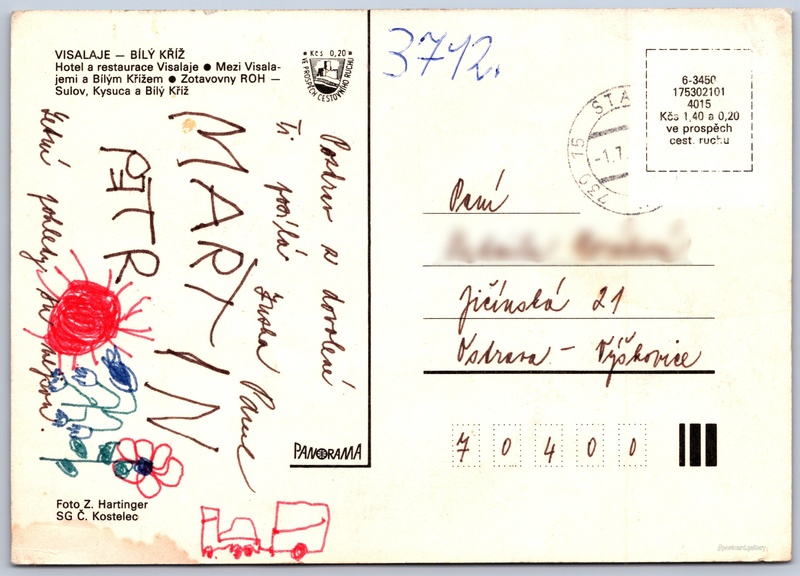 VISALAJE — BÍLÝ KŘÍŽ
Hotel a restaurace Visalaje ● Mezi Visala-
jemi a Bílým Křížem ● Zotavovny ROH —
Sulov, Kysuca a Bílý Kříž
Kčs 0,20
VE PROSPĚCH CESTOVNÍHO RUCHU
3742.
6-3450
175302101
4015
Kčs 1,40 a 0,20
ve prospěch
cest. ruchu
STA
739 75
-1.7.
Pozdrav z dovolené
Ti posílá
Zuzka Pavel
MARTIN
PETR
Letní pohledy tu nejsou.
Paní
Jičínská 21
Ostrava - Výškovice
70400
PANORAMA
Foto Z. Hartinger
SG Č. Kostelec